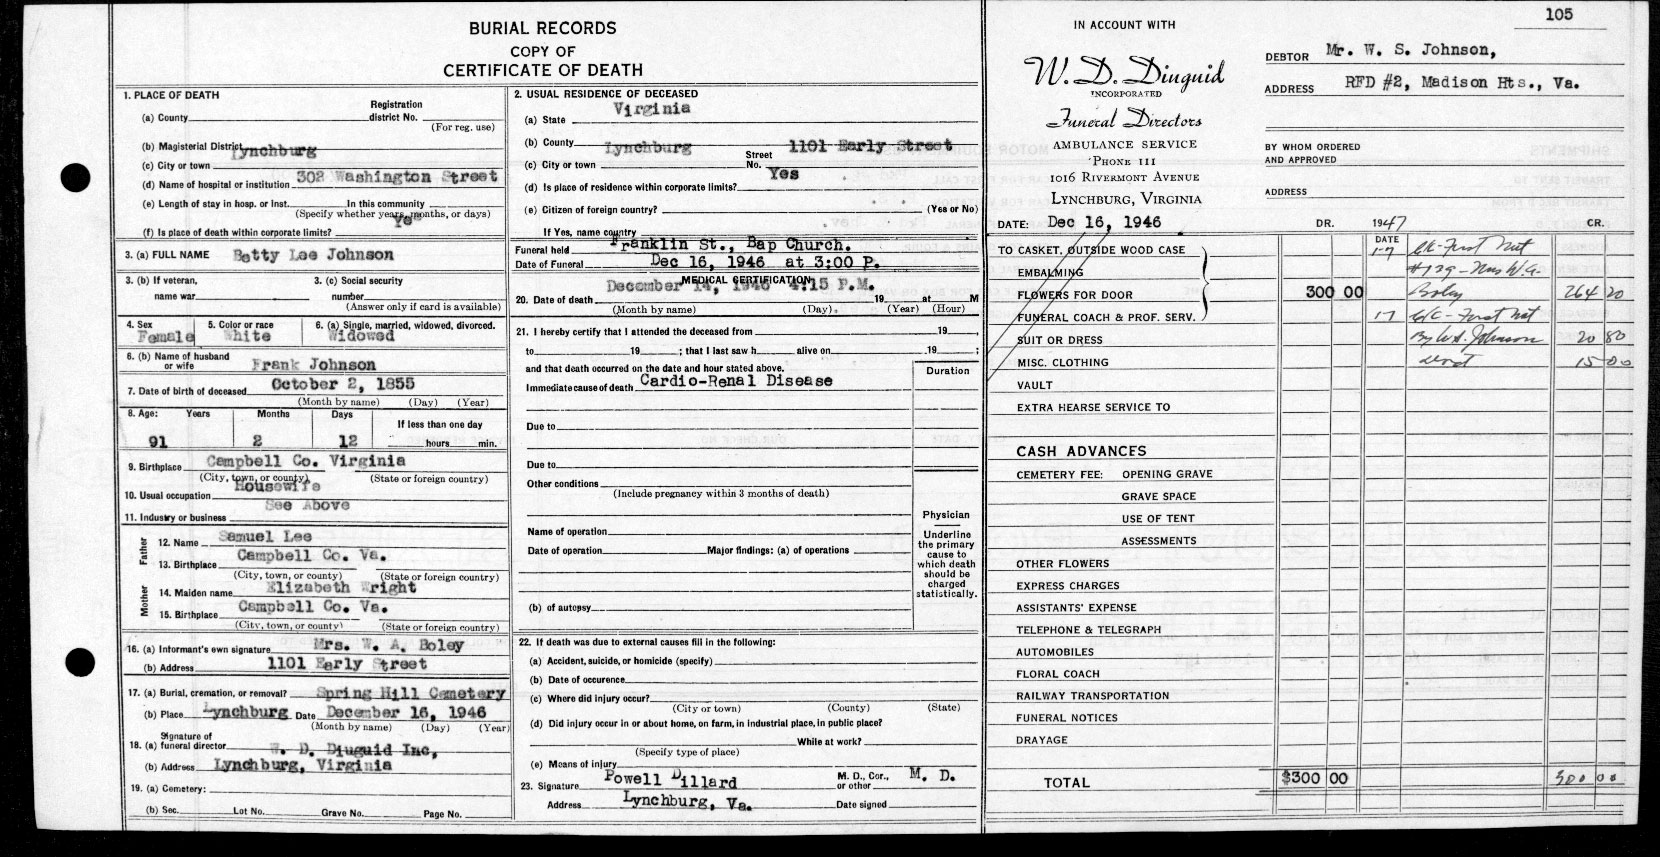 BURIAL RECORDS
COPY OF
CERTIFICATE OF DEATH
1. PLACE OF DEATH
Registration
(a) County district No.
(For reg. use)
(b) Magisterial District Lynchburg
(c) City or town
(d) Name of hospital or institution 302 Washington Street
(e) Length of stay in hosp. or Inst. In this community
(Specify whether years, months, or days)
(f) Is place of death within corporate limits? Yes
3. (a) FULL NAME Betty Lee Johnson
3. (b) If veteran, 3. (c) Social security
name war number
(Answer only if card is available)
4. Sex 5. Color or race 6. (a) Single, married, widowed, divorced.
Female White Widowed
6. (b) Name of husband
or wife Frank Johnson
7. Date of birth of deceased October 2, 1855
(Month by name) (Day) (Year)
8. Age: Years Months Days If less than one day
91 2 12 hours min.
9. Birthplace Campbell Co. Virginia
(City, town, or county) (State or foreign country)
10. Usual occupation Housewife
11. Industry or business See Above
Father
12. Name Samuel Lee
13. Birthplace Campbell Co. Va.
(City, town, or county) (State or foreign country)
Mother
14. Maiden name Elizabeth Wright
15. Birthplace Campbell Co. Va.
(City, town, or county) (State or foreign country)
16. (a) Informant's own signature Mrs. W. A. Boley
(b) Address 1101 Early Street
17. (a) Burial, cremation, or removal? Spring Hill Cemetery
(b) Place Lynchburg Date December 16, 1946
(Month by name) (Day) (Year)
Signature of
18. (a) funeral director W. D. Diuguid Inc,
(b) Address Lynchburg, Virginia
19. (a) Cemetery:
(b) Sec. Lot No. Grave No. Page No.
2. USUAL RESIDENCE OF DECEASED
(a) State Virginia
(b) County Lynchburg Street 1101 Early Street
(c) City or town No.
(d) Is place of residence within corporate limits? Yes
(e) Citizen of foreign country? (Yes or No)
If Yes, name country
Funeral held Franklin St., Bap Church.
Date of Funeral Dec 16, 1946 at 3:00 P.
MEDICAL CERTIFICATION
20. Date of death December 14, 1946 4:15 P.M. 19 at M
(Month by name) (Day) (Year) (Hour)
21. I hereby certify that I attended the deceased from 19 ,
to 19 ; that I last saw h alive on 19 ;
and that death occurred on the date and hour stated above. Duration
Immediate cause of death Cardio-Renal Disease
Due to
Due to
Other conditions
(Include pregnancy within 3 months of death)
Name of operation
Date of operation Major findings: (a) of operations
(b) of autopsy
Physician
Underline
the primary
cause to
which death
should be
charged
statistically.
22. If death was due to external causes fill in the following:
(a) Accident, suicide, or homicide (specify)
(b) Date of occurence
(c) Where did injury occur?
(City or town) (County) (State)
(d) Did injury occur in or about home, on farm, in industrial place, in public place?
While at work?
(Specify type of place)
(e) Means of injury
23. Signature Powell Dillard M. D., Cor., or other M. D.
Address Lynchburg, Va. Date signed
105
IN ACCOUNT WITH
W. D. Diuguid
INCORPORATED
Funeral Directors
AMBULANCE SERVICE
'PHONE 111
1016 RIVERMONT AVENUE
LYNCHBURG, VIRGINIA
DEBTOR Mr. W. S. Johnson,
ADDRESS RFD #2, Madison Hts., Va.
BY WHOM ORDERED
AND APPROVED
ADDRESS
DATE: Dec 16, 1946 DR. 1947 CR.
DATE
TO CASKET, OUTSIDE WOOD CASE 1-7 Ck-First Nat
EMBALMING #139-Mrs W.A.
FLOWERS FOR DOOR 300 00 Boley 264 20
FUNERAL COACH & PROF. SERV. 17 C/C-First Nat
SUIT OR DRESS By W.S. Johnson 20 80
MISC. CLOTHING 15 00
VAULT
EXTRA HEARSE SERVICE TO
CASH ADVANCES
CEMETERY FEE: OPENING GRAVE
GRAVE SPACE
USE OF TENT
ASSESSMENTS
OTHER FLOWERS
EXPRESS CHARGES
ASSISTANTS' EXPENSE
TELEPHONE & TELEGRAPH
AUTOMOBILES
FLORAL COACH
RAILWAY TRANSPORTATION
FUNERAL NOTICES
DRAYAGE
TOTAL $300 00 300 00